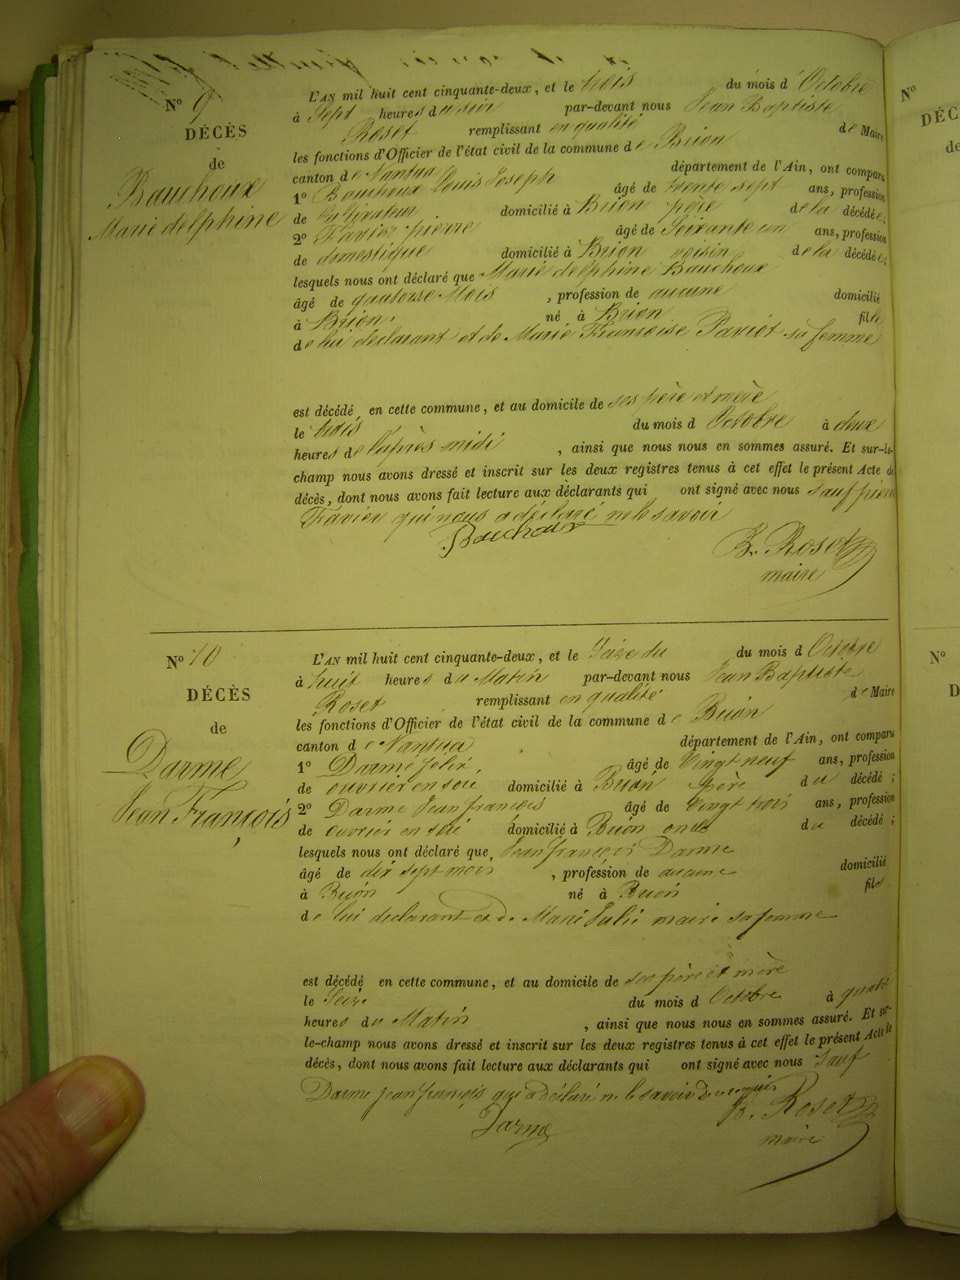 N° 9
DÉCÈS
de
Bauchoux
Marie delphine
L'AN mil huit cent cinquante-deux, et le trois du mois d'Octobre
à Sept heures du soir par-devant nous Jean Baptiste
Roset remplissant en qualité de Maire
les fonctions d'Officier de l'état civil de la commune de Brion
canton de Nantua département de l'Ain, ont comparu
1° Bauchoux Louis Joseph âgé de trente sept ans, profession
de domicilié à Brion père de la décédée;
2° pierre âgé de Soixante un ans, profession
de domestique domicilié à Brion voisin de la décédée;
lesquels nous ont déclaré que Marie delphine Bauchoux
âgé de quatorze Mois, profession de aucune domicilié
à Brion, né à Brion fille
de lui déclarant et de Marie Françoise Paviot sa femme
est décédé en cette commune, et au domicile de ses père et mère
le trois du mois d'Octobre à deux
heures de l'après midi, ainsi que nous nous en sommes assuré. Et sur-le-
champ nous avons dressé et inscrit sur les deux registres tenus à cet effet le présent Acte de
décès, dont nous avons fait lecture aux déclarants qui ont signé avec nous Sauf pierre
qui nous a déclaré ne le savoir
Bauchoux
B. Roset
maire
N° 10
DÉCÈS
de
Darme
Jean François
L'AN mil huit cent cinquante-deux, et le Seize du du mois d'Octobre
à huit heures du Matin par-devant nous Jean Baptiste
Roset remplissant en qualité de Maire
les fonctions d'Officier de l'état civil de la commune de Brion
canton de Nantua département de l'Ain, ont comparu
1° Darme félix, âgé de Vingt neuf ans, profession
de ouvrier en soie domicilié à Brion père du décédé;
2° Darme Jean françois âgé de Vingt trois ans, profession
de ouvrier en soie domicilié à Brion oncle du décédé;
lesquels nous ont déclaré que, Jean françois Darme
âgé de dix sept mois, profession de aucune domicilié
à Brion né à Brion fils
de lui declarant et de Marie Julie maire sa femme
est décédé en cette commune, et au domicile de ses père et mère
le Seize du mois d'Octobre à quatre
heures du Matin, ainsi que nous nous en sommes assuré. Et sur-
le-champ nous avons dressé et inscrit sur les deux registres tenus à cet effet le présent Acte de
décès, dont nous avons fait lecture aux déclarants qui ont signé avec nous Sauf
Darme jean françois qui a déclaré ne le savoir de ce requis
Darme
B. Roset
maire
N°
DÉCÈS
de
N°
D